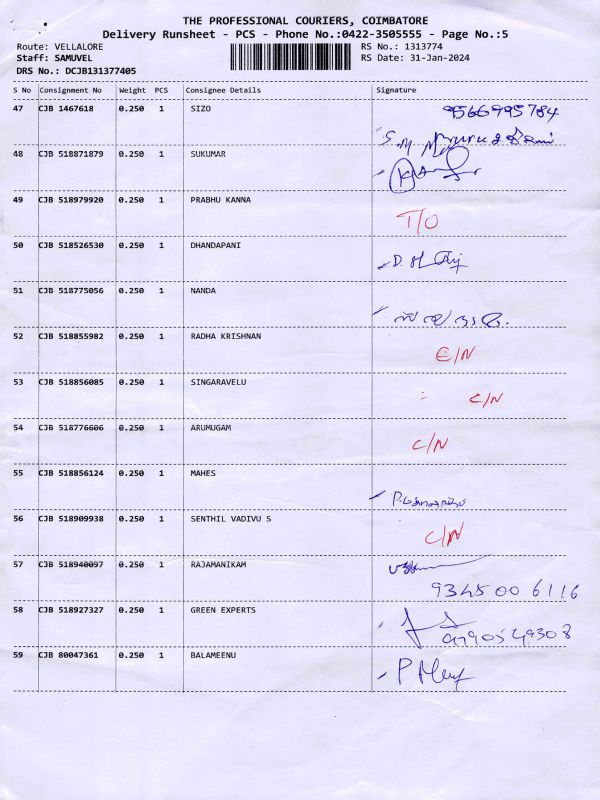 THE PROFESSIONAL COURIERS, COIMBATORE
Delivery Runsheet - PCS - Phone No.:0422-3505555 - Page No.:5
Route: VELLALORE RS No.: 1313774
Staff: SAMUVEL RS Date: 31-Jan-2024
DRS No.: DCJB131377405
S No Consignment No Weight PCS Consignee Details Signature
47 CJB 1467618 0.250 1 SIZO 9566995784
48 CJB 518871879 0.250 1 SUKUMAR
49 CJB 518979920 0.250 1 PRABHU KANNA
T/O
50 CJB 518526530 0.250 1 DHANDAPANI
51 CJB 518775056 0.250 1 NANDA
52 CJB 518855982 0.250 1 RADHA KRISHNAN
C/N
53 CJB 518856085 0.250 1 SINGARAVELU
C/N
54 CJB 518776606 0.250 1 ARUMUGAM
C/N
55 CJB 518856124 0.250 1 MAHES
56 CJB 518909938 0.250 1 SENTHIL VADIVU S
C/N
57 CJB 518940097 0.250 1 RAJAMANIKAM
9345006116
58 CJB 518927327 0.250 1 GREEN EXPERTS
59 CJB 80047361 0.250 1 BALAMEENU